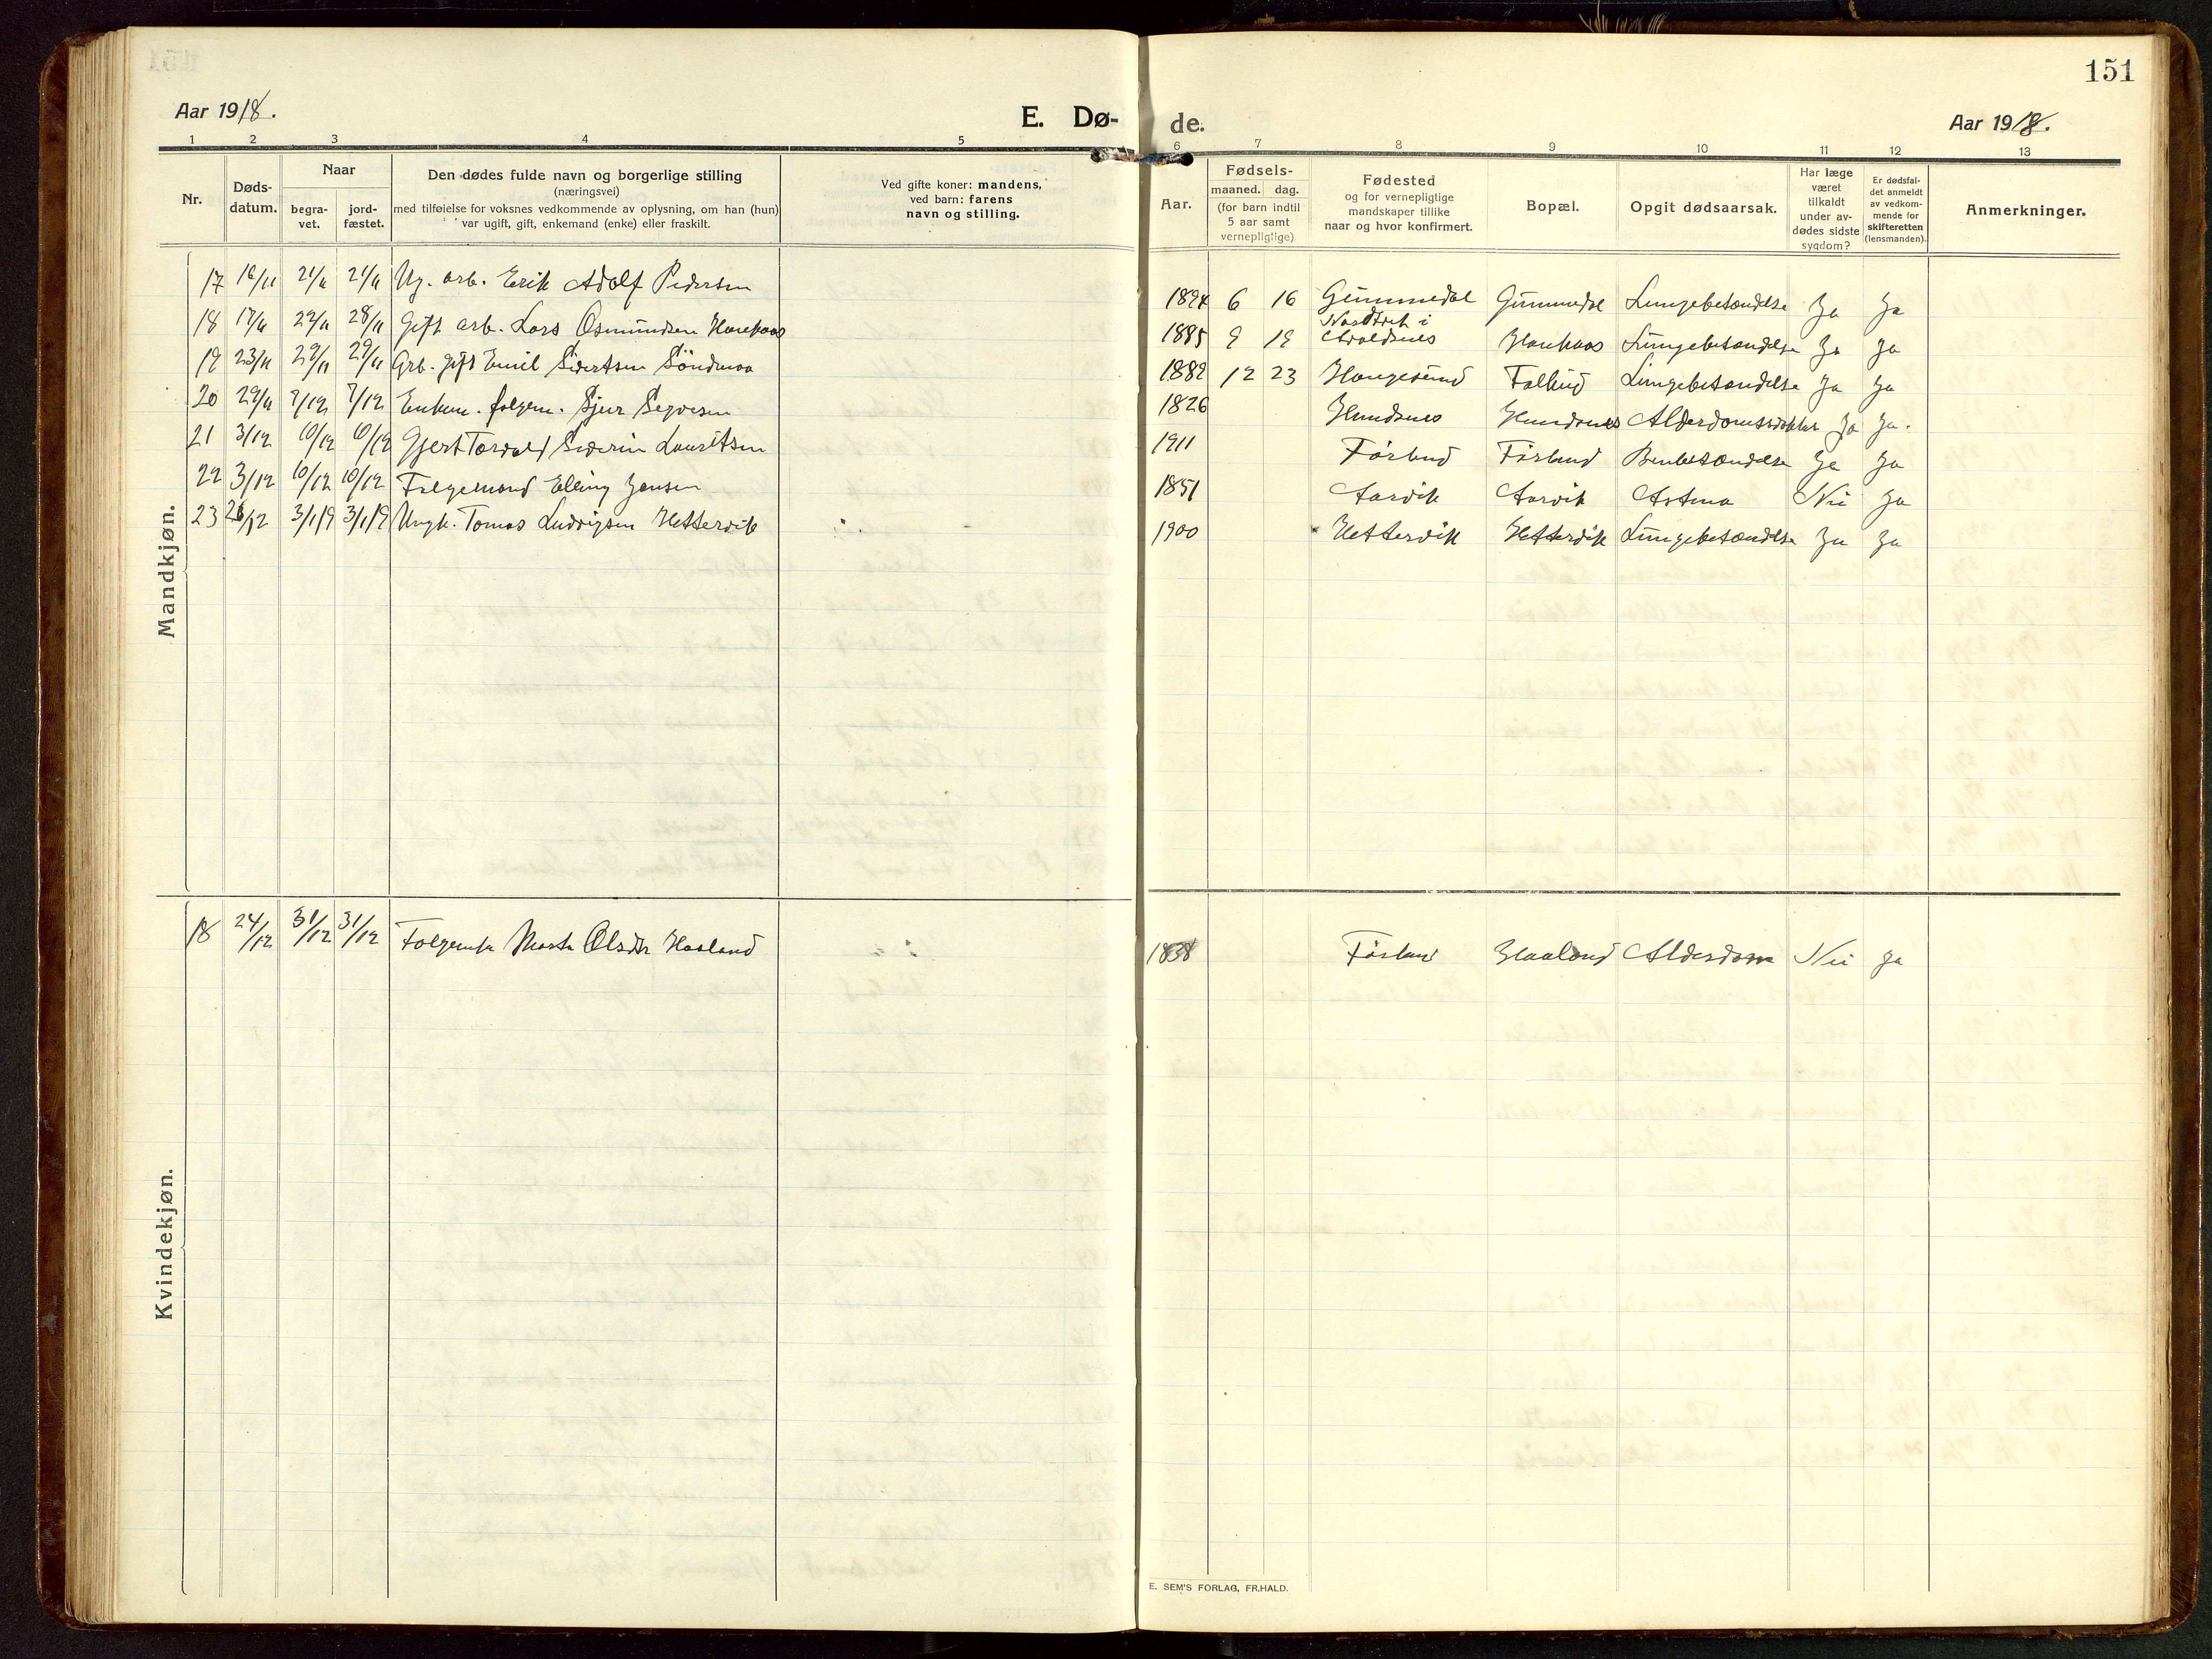 151
Aar 1918.
E. Dø-
de.
Aar 1918.
1 2 3 4 5 6 7 8 9 10 11 12 13
Nr.
Døds-
datum.
Naar
begra-
vet.
jord-
fæstet.
Den dødes fulde navn og borgerlige stilling
(næringsvei)
med tilføielse for voksnes vedkommende av oplysning, om han (hun)
var ugift, gift, enkemand (enke) eller fraskilt.
Ved gifte koner: mandens,
ved barn: farens
navn og stilling.
Aar.
Fødsels-
maaned. dag.
(for barn indtil
5 aar samt
vernepligtige)
Fødested
og for vernepligtige
mandskaper tillike
naar og hvor konfirmert.
Bopæl.
Opgit dødsaarsak.
Har læge
været
tilkaldt
under av-
dødes sidste
sygdom?
Er dødsfal-
det anmeldt
av vedkom-
mende for
skifteretten
(lensmanden).
Anmerkninger.
Mandkjøn.
17 16/11 21/11 21/11 Ug. arb. Erik Adolf Pedersen 1894 6 16 Gummedal Gummedal Lungebetændelse Ja Ja
18 17/11 22/11 28/11 Gift arb. Lars Osmundsen Haukaas 1885 9 19 Nordtveit i Avaldsnes Haukaas Lungebetændelse Ja Ja
19 23/11 29/11 29/11 Arb. gift Emil Sivertsen Söndenaa 1882 12 23 Haugesund Lungebetændelse Ja Ja
20 29/11 7/12 7/12 Enkem. folgem. Sjur 1826 Hundsnes Hundsnes Ja Ja.
21 3/12 10/12 10/12 Gjert Torvald Severin Lauritsen 1911 Førland Førland Benbetændelse Ja Ja
22 3/12 10/12 10/12 Folgemand Elling Jansen 1851 Aarvik Aarvik Astma Nei Ja
23 26/12 3/1/19 3/1/19 Ungk. Tomas Ludvigsen Hettervik 1900 Hettervik Hettervik Lungebetændelse Ja Ja
Kvindekjøn.
18 24/12 31/12 31/12 Marta Olsdtr Haaland 1838 Førland Haaland Alderdom Nei Ja
E. SEM'S FORLAG, FR.HALD.